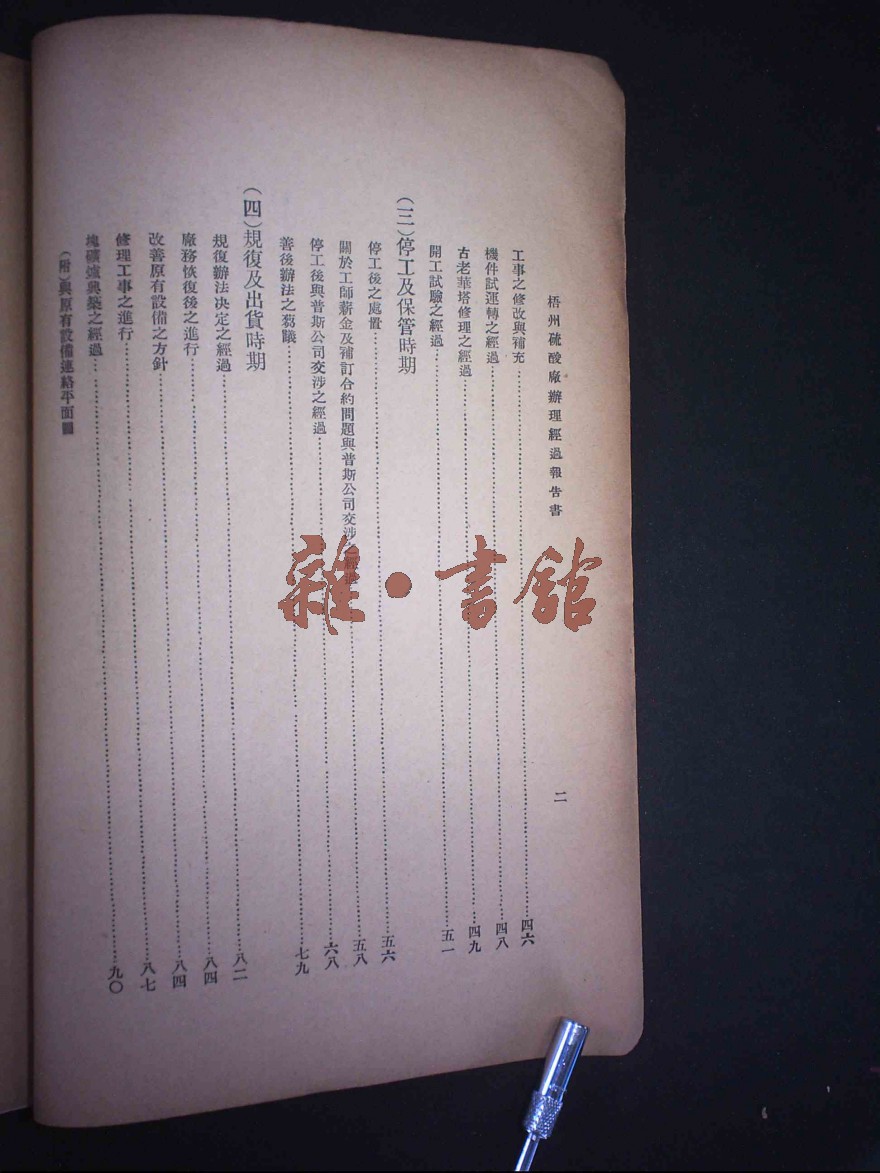 梧州硫酸廠辦理經過報告書
二
工事之修改與補充……四六
機件試運轉之經過……四八
古老華塔修理之經過……四九
開工試驗之經過……五一
(三)停工及保管時期
停工後之處置……五六
關於工師薪金及補訂合約問題與普斯公司交涉之……五八
停工後與普斯公司交涉之經過……六八
善後辦法之芻議……七九
(四)規復及出貨時期
規復辦法決定之經過……八二
廠務恢復後之進行……八四
改善原有設備之方針……八四
修理工事之進行……八七
塊礦爐興築之經過……九〇
(附)與原有設備連絡平面圖
雜·書館